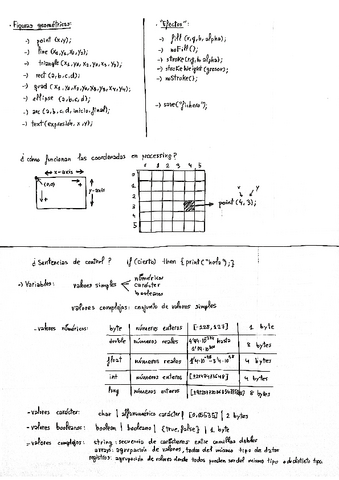 · Figuras geométricas:
-> point (x,y);
-> line (x₁,y₁,x₂,y₂);
-> triangle (x₁,y₁,x₂,y₂,x₃,y₃);
-> rect (a,b,c,d);
-> quad (x₁,y₁,x₂,y₂,x₃,y₃,x₄,y₄);
-> ellipse (a,b,c,d);
-> arc (a,b,c,d, inicio, final);
-> text (expresión, x, y);
· "Efectos":
-> fill (r,g,b,alpha);
-> noFill();
-> stroke(r,g,b,alpha);
-> strokeWeight (grosor);
-> noStroke();
-> save("fichero");
¿ cómo funcionan las coordenadas en processing ?
x-axis
(0,0)
y-axis
0 1 2 3 4 5
0
1
2
3
4
5
x y
point (4,3);
¿ Sentencias de control ? if (cierto) then {print("hola");}
-> Variables: valores simples
numéricos
carácter
booleanos
valores complejos: conjunto de valores simples
- valores numéricos:
byte | números enteros | [-128,127] | 1 byte
double | números reales | hasta | 8 bytes
float | números reales | 4 bytes
int | números enteros | 4 bytes
long | números enteros | 8 bytes
- valores carácter: char | alfanumérico carácter | [0,65535] | 2 bytes
- valores booleanos: boolean | booleano | {true, false} | 1 byte
- valores complejos: string: secuencia de carácteres entre comillas dobles
arrays: agrupación de valores, todos del mismo tipo de datos
registros: agrupación de valores donde todos pueden ser del mismo tipo o de distinto tipo